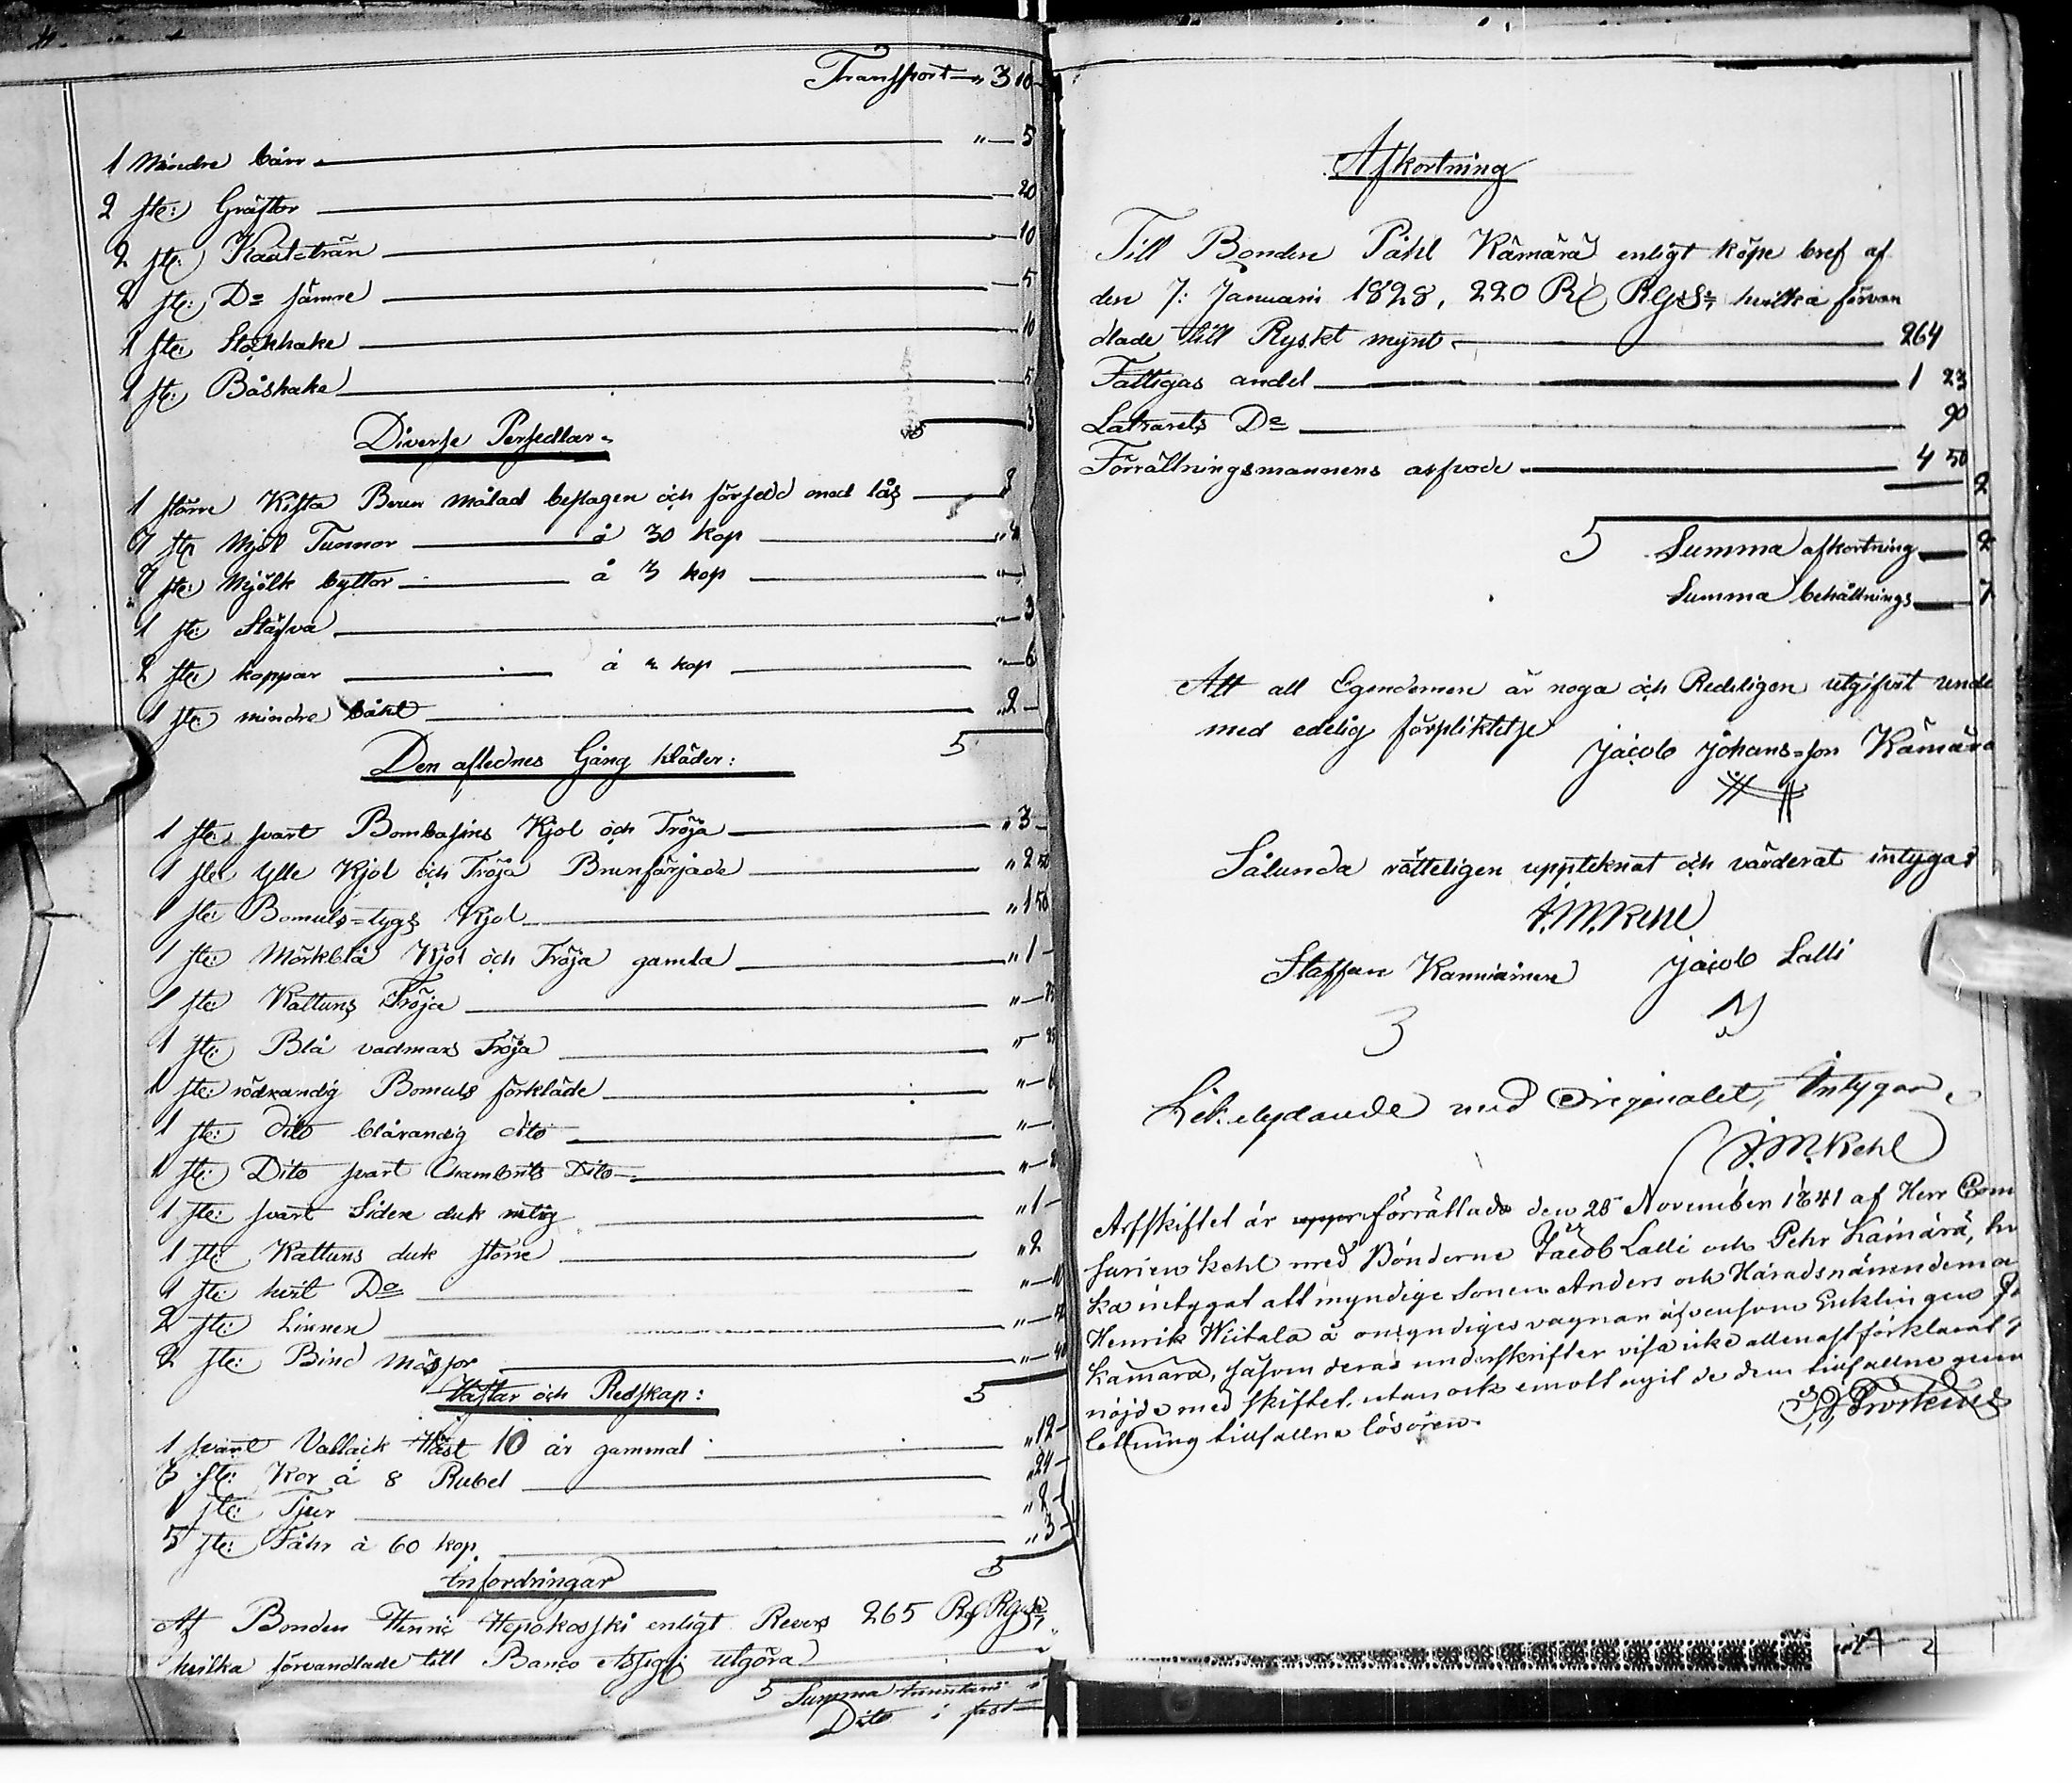 Transport " 3 10
1 Mindre bårr " 5
2 ste: Gräftor 20
2 ste: Kaat=trän 10
2 ste: Do sämre 5
1 ste: Stockhake 10
1 ste: Båshake 5
Diverse Persedlar
1 större Kista Brun målad beslagen och försedd med lås
7 ste Mjöl Tunnor å 30 kop
7 ste: Mjölk byttor å 3 kop
1 ste: Stäfva 3
2 ste: koppar å kop 6
1 ste mindre båhl 2
Den aflednes Gång kläder: 5
1 ste svart Bombasins Kjol och Tröja " 3
1 ste Ylle Kjol och Tröja Brunfärjade " 2 50
1 ste: Bomuls=tygs Kjol " 1 50
1 ste: Mörkblå Kjol och Tröja gamla " 1
1 ste Kattuns Tröja
1 ste: Blå vadmars Tröja
1 ste: rödrandig Bomuls förkläde
1 ste: dito blårandig dito
1 ste: Dito svart Chambrits Dito
1 ste: svart Siden duk " 1
1 ste: Kattuns duk större " 2
1 ste: hvit Do
2 ste: Linnen
2 ste: Bind Mössor
Hästar och Redskap: 5
1 svart Vallack Häst 10 år gammal " 12
3 ste: Kor å 8 Rubel " 24
1 ste: Tjur " 2
5 ste: Fåhr à 60 kop. " 3
Infordringar 5
Af Bonden Henric Hepokoski enligt Revers 265 Rd Rgs
hvilka förvandlade till Banco Assig: utgöra
5 Summa Inventarii
Dito i fast
Afkortning
Till Bonden Påhl Kämärä enligt köpe bref af
den 7: Januarii 1828, 220 Rd RgsSr hvilka förvan
dlade till Ryskt mynt 264
Fattigas andel 1 23
Latzarets Do 90
Förrättningsmannens arfvode 4 50
2
5 Summa afkortning 2
Summa behållnings 7
Att all Egendomen är noga och Redeligen utgifvit unde
med edelig förpliktelse Jacob Johans=son Kämärä
Sålunda rätteligen uppteknat och värderat intygas
J. M. Kehl
Staffan Kanniainen Jacob Lalli
Lik lydande med Originalet, Intygar
J. M. Kehl
Arfskiftet är förrättade den 25 November 1841 af Herr Com
Kehl med Bönderne Jacob Lalli och Pehr Kämärä,
ka intygat att myndige Sonen Anders och Häradsnämndema
Henrik Wiitala å omyndiges vagnar äfvensom Enklingen
Kämärä, såsom deras underskrifter visa icke allenast förklarat
nöjde med skiftet, utan ock emottagit de dem tillfallne genn
lottning tillfallne lösören.